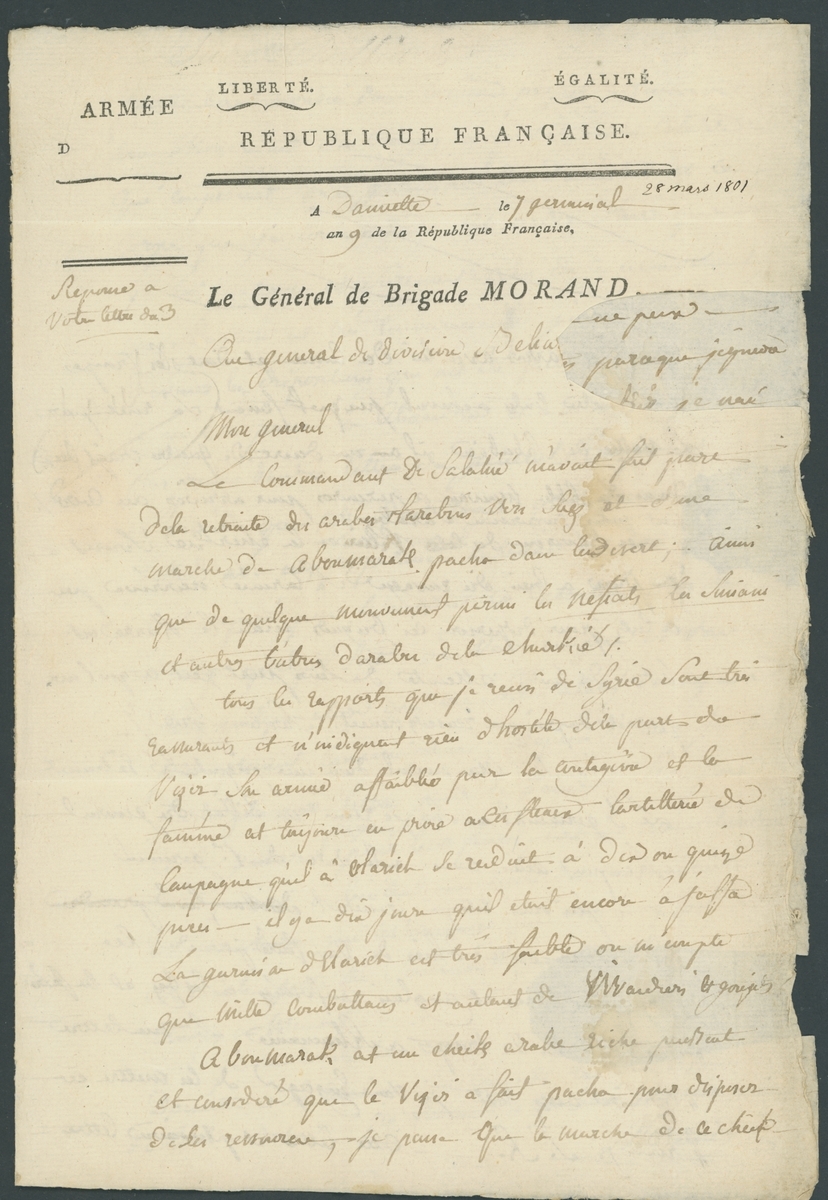 LIBERTÉ. ÉGALITÉ.
ARMÉE
D
RÉPUBLIQUE FRANÇAISE.
28 mars 1801
A Damiette le 7 germinal
an 9 de la République Française.
Reponse a
Votre lettre du 3
Le Général de Brigade MORAND
ne peux
Au general de division Belia
paraque
je
Mon general
Le Commandant De Salahié m'avait fait part
de la retraite des arabes vers Suez et d'une
marche de Aboumarak pacha dans le desert; Ainsi
que de quelque mouvement parmi les les
et autres tribus d'arabes de la Charkié.
tous les rapports que je recois de Syrie sont très
rassurants et n'indiquent rien d'hostile de la part du
Vizir Son armée affaiblie par la contagion et la
famine est toujours en proie a ces fleaux l'artillerie de
Campagne qu'il a Elarich se reduit à dix ou quinze
pieces — il y a dix jours qu'il etait encore à jaffa
La garnison d'Elarich est très faible on ne compte
que mille combattans et autant de
Aboumarak est un cheik arabe riche puissant
et consideré que le Vizir a fait pacha pour disposer
de ses ressources, je pense que la marche de ce cheik